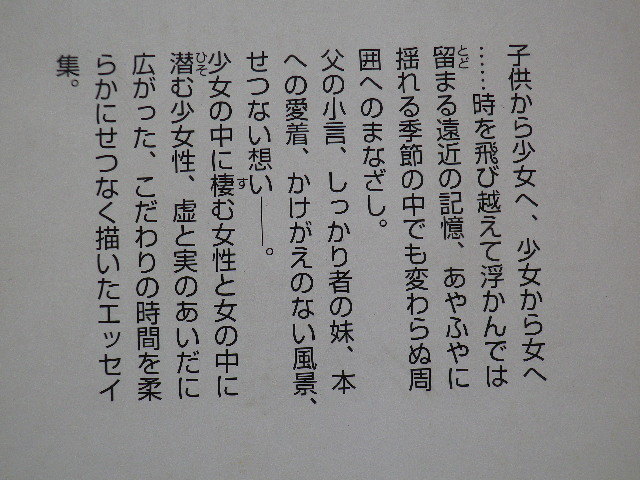 子供から少女へ、少女から女へ
……時を飛び越えて浮かんでは
留まる遠近の記憶、あやふやに
揺れる季節の中でも変わらぬ周
囲へのまなざし。
父の小言、しっかり者の妹、本
への愛着、かけがえのない風景、
せつない想い――。
少女の中に棲む女性と女の中に
潜む少女性、虚と実のあいだに
広がった、こだわりの時間を柔
らかにせつなく描いたエッセイ
集。
とど
す
ひそ